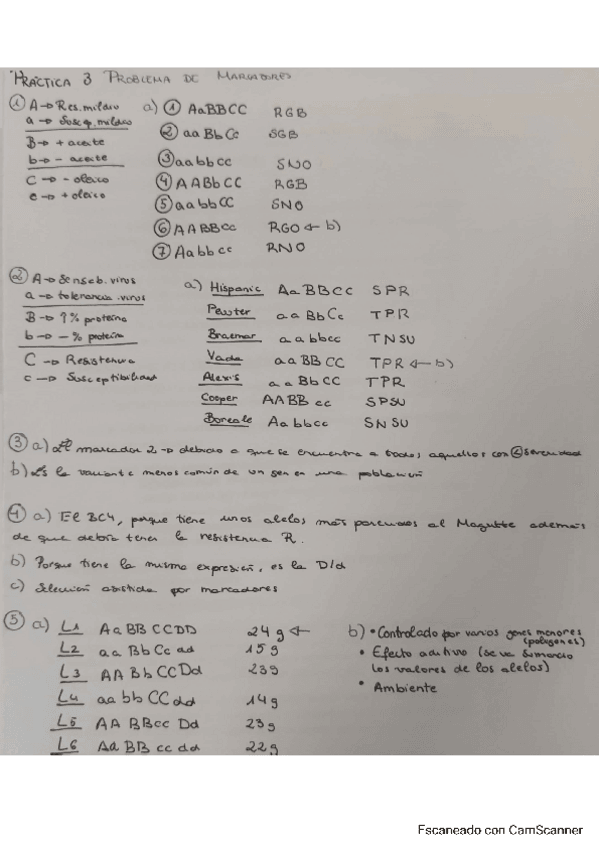 PRÁCTICA 3 PROBLEMA DE MARCADORES
① A → Res. mildiu
a → Suscep. mildiu
B → + aceite
b → - aceite
C → - oleico
c → + oleico
a) ① AaBBCC RGB
② aaBbCc SGB
③ aabbcc SNO
④ AABbCC RGB
⑤ aabbCC SNO
⑥ AABBCc RGO ← b)
⑦ Aabbcc RNO
② A → Senseb. virus
a → tolerancia virus
B → ↑% proteína
b → - % proteína
C → Resistencia
c → Susceptibilidad
a) Hispanic AaBBCC SPR
Pewter aaBbCc TPR
Braemar aabbcc TNSU
Vada aaBBCC TPR ← b)
Alexis aaBbCC TPR
Cooper AABBcc SPSU
Boreale Aabbcc SNSU
③ a) El marcador 2 → debido a que se encuentra a todos aquellos con severidad
b) Es la variante menos común de un gen en una población
④ a) El BC4, porque tiene unos alelos más parecidos al Magutte además
de que debía tener la resistencia R.
b) Porque tiene la misma expresión, es la D/d
c) Selección asistida por marcadores
⑤ a) L1 AaBBCCDD 24g ←
L2 aaBbCcdd 15g
L3 AABbCCDd 23g
L4 aabbCCdd 14g
L5 AABBccDd 23g
L6 AaBBccdd 22g
b) • Controlado por varios genes menores
(poligenes)
• Efecto aditivo (se va sumando
los valores de los alelos)
• Ambiente
Escaneado con CamScanner